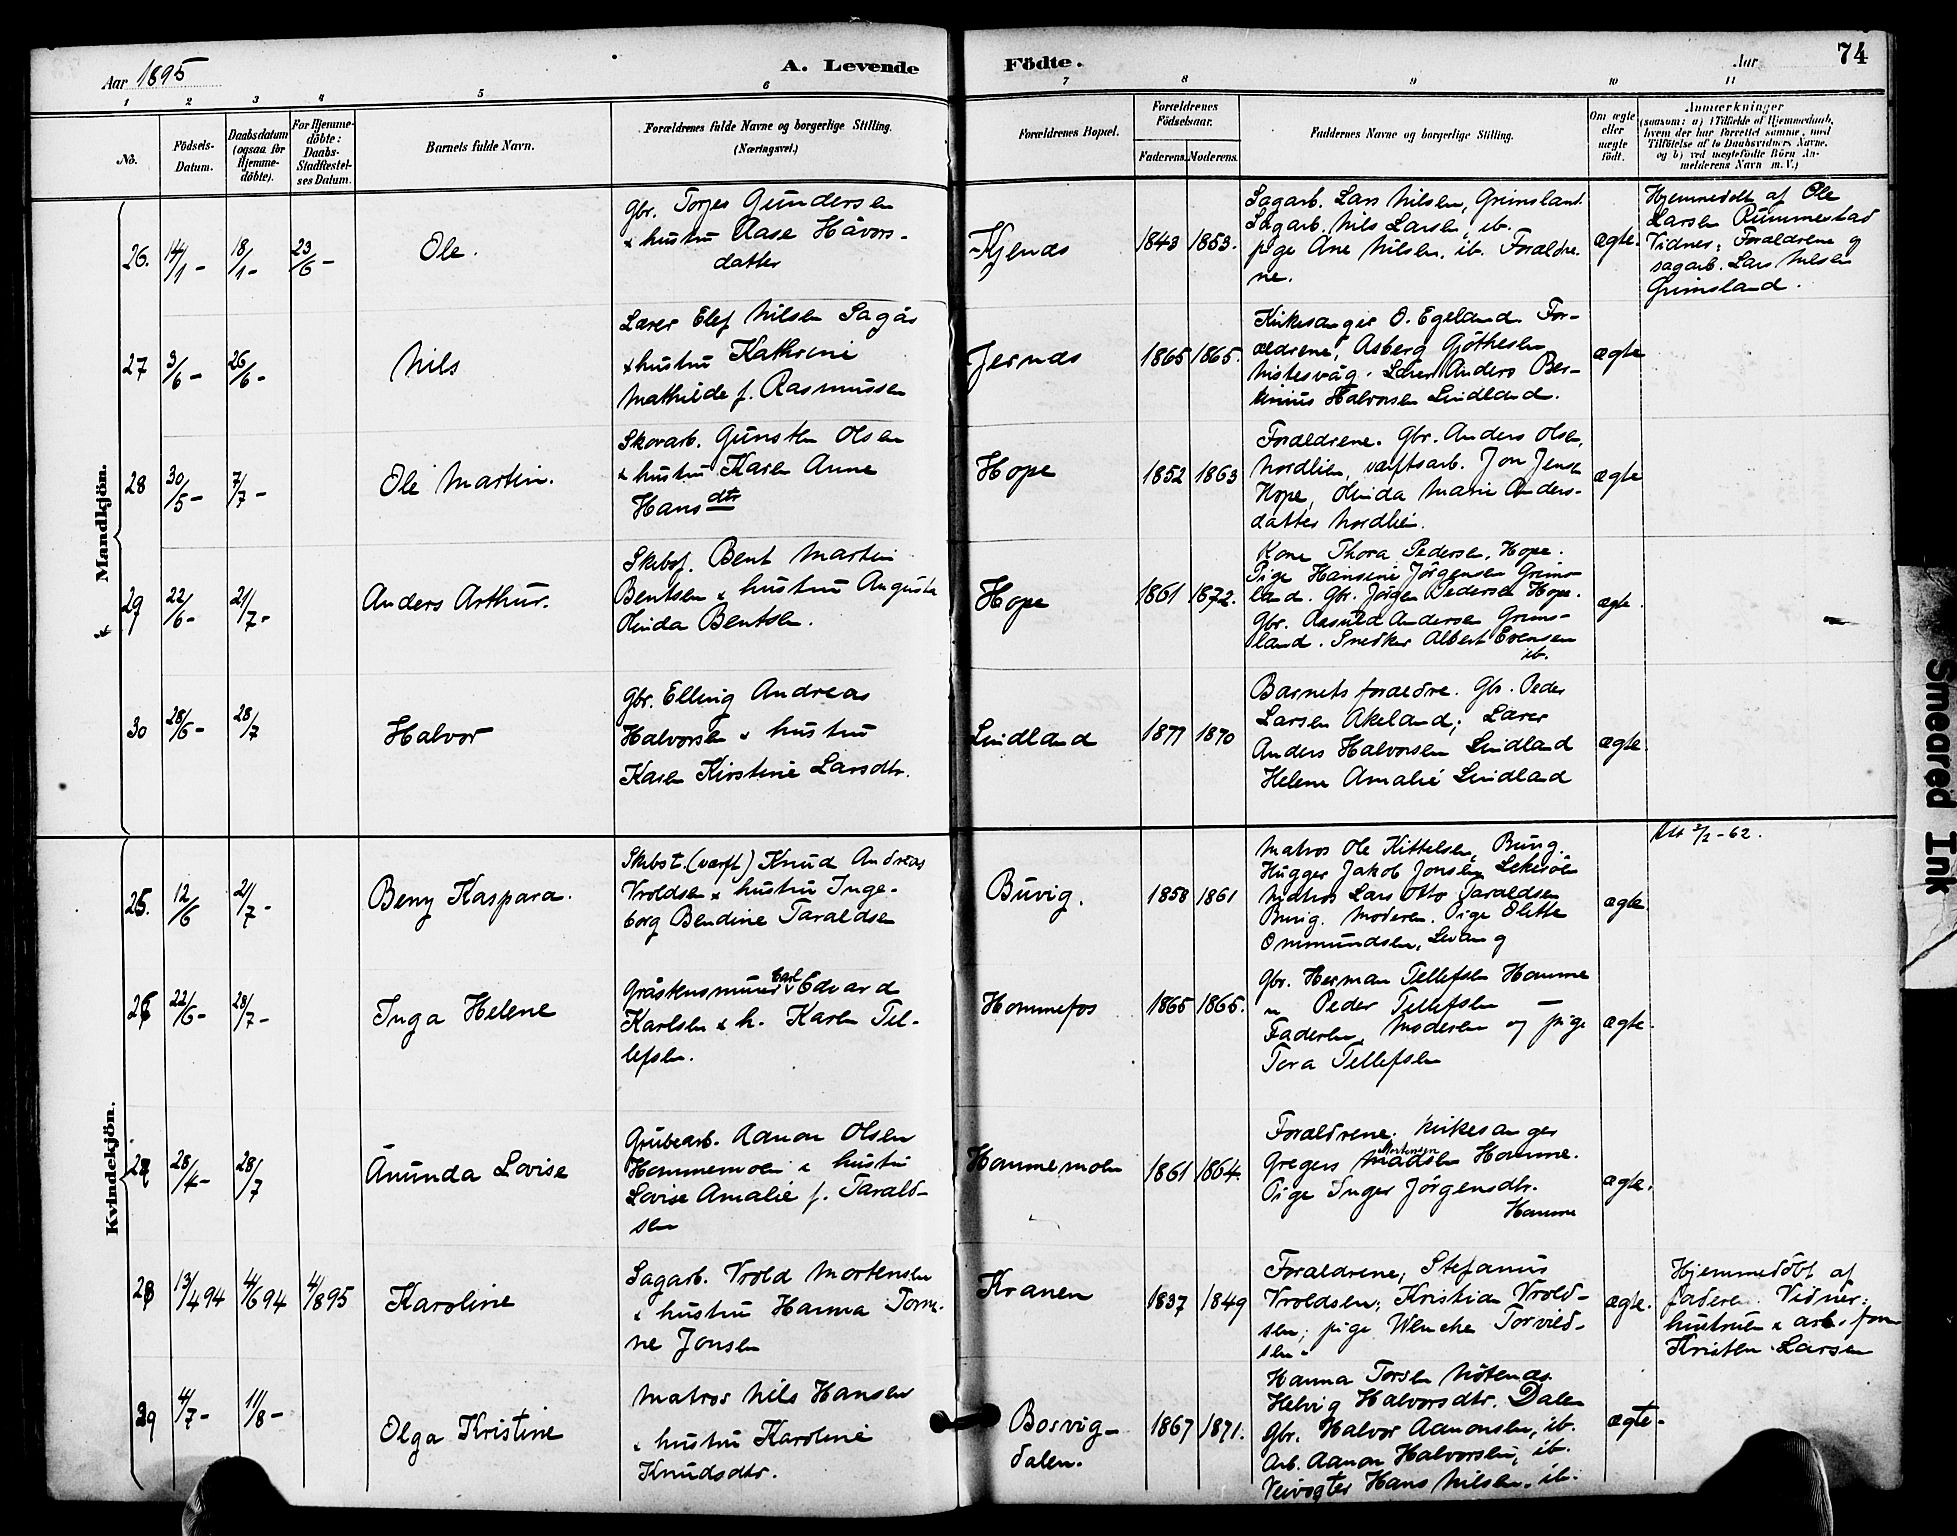 Aar 1895
A. Levende
Födte.
Aar
74
1 2 3 4 5 6 7 8 9 10 11
No.
Födsels-
Datum.
Daabsdatum
(ogsaa for
Hjemme-
döbte).
For Hjemme-
döbte:
Daabs-
Stadfæstel-
ses Datum.
Barnets fulde Navn.
Forældrenes fulde Navne og borgerlige Stilling.
(Næringsvei.)
Forældrenes Bopæl.
Forældrenes
Födselsaar.
Faderens. Moderens.
Faddernes Navne og borgerlige Stilling.
Om ægte
eller
uægte
födt.
Anmærkninger
(saasom: a) i Tilfælde af Hjemmedaab,
hvem der har forrettet samme, med
Tilföielse af to Daabsvidners Navne,
og b) ved uægtefödte Börn An-
melderens Navn m. V.)
Mandkjön.
26. 14/1 - 18/1 - 23/6 -
Ole.
Gbr. Torjes Gundersen
& hustru Aase Håvors-
datter
Kjenås
1843 1853.
Sagarb. Lars Nilsen, Grimsland.
Sagarb. Nils Larsen, ib.
pige Ane Nilsen, ib. Forældre-
ne.
ægte.
Hjemmedøbt af Ole
Larsen Rummestad
Vidner: Forældrene og
sagarb. Lars Nilsen
Grimsland.
27 3/6 - 26/6 -
Nils
Lærer Elef Nilsen Sagås
& hustru Kathrine
Mathilde f. Rasmussen
Jernås
1865 1865.
Kirkesanger O. Egeland. For-
ældrene, Asberg Gjøthesen
Nistesvåg. Lærer Anders Ber-
Halvorsen Lindland.
ægte
28 30/5 - 7/7 -
Ole Martin.
Skovarb. Gunsten Olsen
& hustru Karen Anne
Hansdtr
Hope
1852 1863
Forældrene. Gbr. Anders Olsen,
Nordlien, værftsarb. Jon Jensen
Hope, Olinda Marie Anders-
datter Nordlien.
ægte
29 22/6 - 21/7 -
Anders Arthur.
Skibsf. Bent Martin
Bentsen & hustru Augusta
Olinda Bentsen.
Hope
1861 1872.
Kone Thora Pedersen, Hope.
Pige Hansine Jörgensen Grims-
land. Gbr. Jörgen Pedersen Hope.
Gbr. Aasuld Andersen Grims-
land. Snedker Albert Evensen
ib.
ægte.
30 28/6 - 28/7
Halvor
Gbr. Elling Andreas
Halvorsen & hustru
Karen Kirstine Larsdtr.
Lindland
1877 1870
Barnets forældre. Gbr. Peder
Larsen Akeland; Lærer
Anders Halvorsen Lindland
Helene Amalie Lindland
ægte.
Kvindekjön.
25. 12/6 21/7 -
Beny Kaspara.
Skibst. (værft) Knud Andreas
Vroldsen & hustru Inge-
borg Bendine Taraldsen
Buvig.
1858 1861
Matros Ole Kittelsen, Buvig.
Hugger Jakob Jonsen
Matros Lars Otto Taraldsen
Buvig. Moderen. Pige Olette
Ommundsen, Levang
ægte.
Att 2/2 - 62.
26 22/6 - 28/7 -
Inga Helene
Gråstensmurer Carl Edvard
Karlsen & h. Karen Tel-
lefsen.
Hommefos
1865 1865.
Gbr. Herman Tellefsen Homme
" Peder Tellefsen —
Faderen, Moderen og pige
Tora Tellefsen
ægte.
27 28/4 - 28/7
Anunda Lovise
Grubearb. Aanon Olsen
Hommemoen & hustru
Lovise Amalie f. Tarald-
sen
Hommemoen
1861 1864.
Forældrene. Kirkesanger
Gregers Madsen Mortensen Homme.
Pige Inger Jörgensdtr.
Homme
ægte.
28 13/4 94 4/6 94 4/8 95
Karoline
Sagarb. Vrold Mortensen
& hustru Hanna Tom-
ne Jonsen
Kranen
1837 1849
Forældrene, Stefanus
Vroldsen; Kristian Vrold-
sen; pige Wenche Torvild-
sen.
ægte.
Hjemmedöbt af
faderen. Vidner:
hustruen & arb.
Kristen Larsen
29 4/7 - 11/8 -
Olga Kristine
Matros Nils Hansen
& hustru Karoline
Knudsdtr.
Bosvig-
dalen.
1867 1871.
Hanna Torsen
Helvig Halvorsdtr. Dalen
Gbr. Halvor Aanonsen, ib.
Arb. Aanon Halvorsen, ib.
Veivogter Hans Nilsen, ib.
ægte-
Smeared Ink